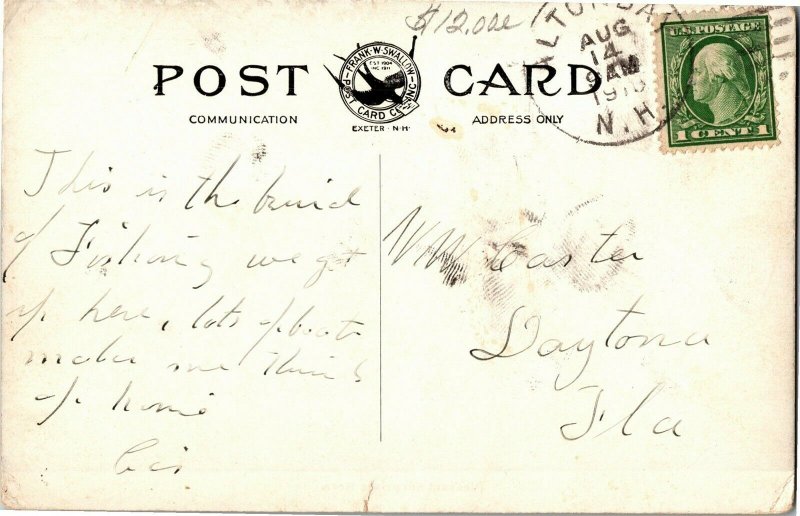 $12.00
ALTON BAY
AUG
14
9 AM
N.H.
U.S. POSTAGE
1 CENT 1
POST CARD
FRANK·W·SWALLOW
EST 1904
INC 1911
POST CARD CO. INC.
EXETER·N·H·
COMMUNICATION
ADDRESS ONLY
This is the
of Fishing we get
up here, lots of boats
makes me think
of home
Cis
W W Caster
Daytona
Fla